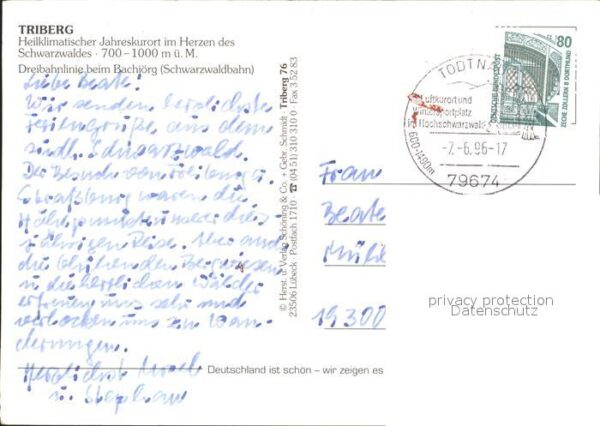 TRIBERG
Heilklimatischer Jahreskurort im Herzen des
Schwarzwaldes · 700–1000 m ü. M.
Dreibahnlinie beim Bachjörg (Schwarzwaldbahn)
Liebe Beate!
Wir senden herzlichste
Feriengrüße aus dem
südl. Schwarzwald.
Der Besuch von Freiburg u.
Straßburg waren die
Höhepunkte unserer dies-
jährigen Reise. Aber auch
die blühenden Bergwiesen
u. die herrlichen Wälder
erfreuen uns sehr und
verlocken uns zu Wan-
derungen.
Herzlichst
u. Stephan
© Herst. u. Verlag Schöning & Co. + Gebr. Schmidt · Triberg 76
23506 Lübeck · Postfach 1710 · ☎ (04 51) 310 310 · Fax 3 52 83
Deutschland ist schön – wir zeigen es
TODTN
Luftkurort und
Wintersportplatz
im Hochschwarzwald
600-1490m
-7.-6.96-17
79674
80
DEUTSCHE BUNDESPOST
ZECHE ZOLLERN II DORTMUND
Frau
Beate
Mühl
19300
privacy protection
Datenschutz